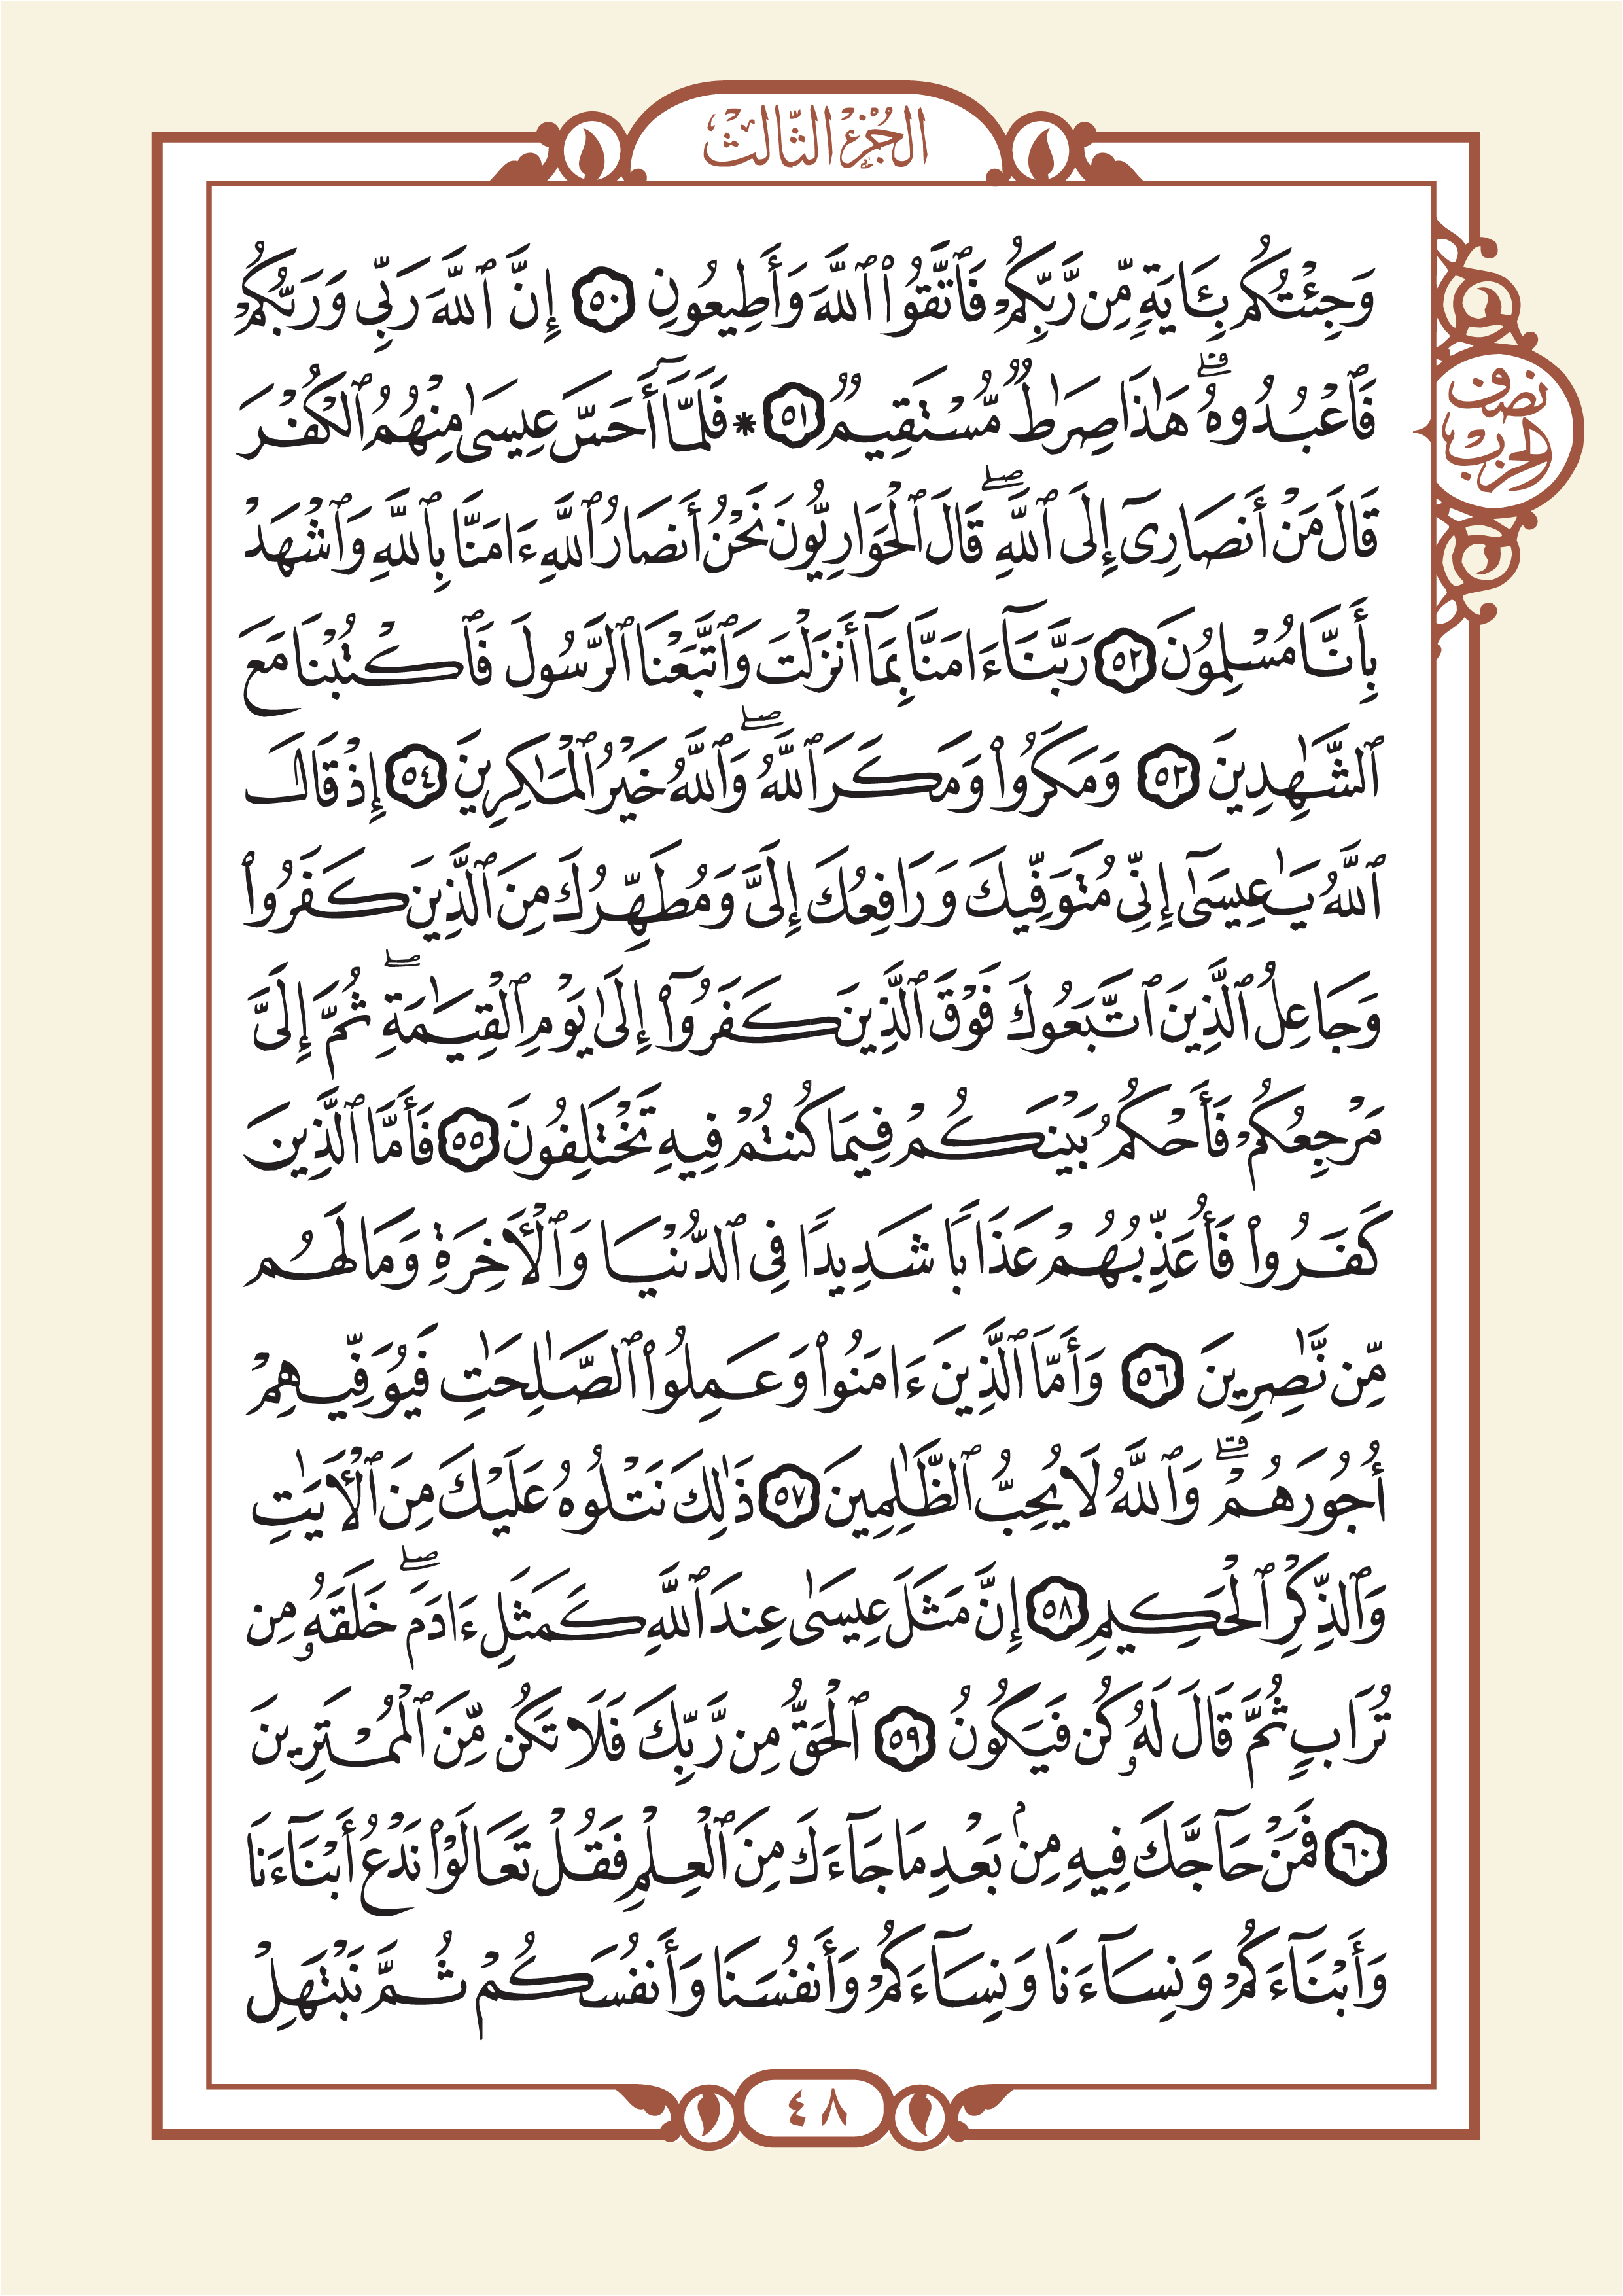 الجُزْءُ الثَّالِثْ
وَجِئْتُكُم بِـَٔايَةٍ مِّن رَّبِّكُمْ فَٱتَّقُوا۟ ٱللَّهَ وَأَطِيعُونِ ٥٠ إِنَّ ٱللَّهَ رَبِّى وَرَبُّكُمْ
فَٱعْبُدُوهُ ۗ هَٰذَا صِرَٰطٌ مُّسْتَقِيمٌ ٥١ * فَلَمَّآ أَحَسَّ عِيسَىٰ مِنْهُمُ ٱلْكُفْرَ
نصف
الحزب
قَالَ مَنْ أَنصَارِىٓ إِلَى ٱللَّهِ ۖ قَالَ ٱلْحَوَارِيُّونَ نَحْنُ أَنصَارُ ٱللَّهِ ءَامَنَّا بِٱللَّهِ وَٱشْهَدْ
بِأَنَّا مُسْلِمُونَ ٥٢ رَبَّنَآ ءَامَنَّا بِمَآ أَنزَلْتَ وَٱتَّبَعْنَا ٱلرَّسُولَ فَٱكْتُبْنَا مَعَ
ٱلشَّٰهِدِينَ ٥٣ وَمَكَرُوا۟ وَمَكَرَ ٱللَّهُ ۖ وَٱللَّهُ خَيْرُ ٱلْمَٰكِرِينَ ٥٤ إِذْ قَالَ
ٱللَّهُ يَٰعِيسَىٰٓ إِنِّى مُتَوَفِّيكَ وَرَافِعُكَ إِلَىَّ وَمُطَهِّرُكَ مِنَ ٱلَّذِينَ كَفَرُوا۟
وَجَاعِلُ ٱلَّذِينَ ٱتَّبَعُوكَ فَوْقَ ٱلَّذِينَ كَفَرُوٓا۟ إِلَىٰ يَوْمِ ٱلْقِيَٰمَةِ ۖ ثُمَّ إِلَىَّ
مَرْجِعُكُمْ فَأَحْكُمُ بَيْنَكُمْ فِيمَا كُنتُمْ فِيهِ تَخْتَلِفُونَ ٥٥ فَأَمَّا ٱلَّذِينَ
كَفَرُوا۟ فَأُعَذِّبُهُمْ عَذَابًا شَدِيدًا فِى ٱلدُّنْيَا وَٱلْأَخِرَةِ وَمَا لَهُم
مِّن نَّٰصِرِينَ ٥٦ وَأَمَّا ٱلَّذِينَ ءَامَنُوا۟ وَعَمِلُوا۟ ٱلصَّٰلِحَٰتِ فَيُوَفِّيهِمْ
أُجُورَهُمْ ۗ وَٱللَّهُ لَا يُحِبُّ ٱلظَّٰلِمِينَ ٥٧ ذَٰلِكَ نَتْلُوهُ عَلَيْكَ مِنَ ٱلْأَيَٰتِ
وَٱلذِّكْرِ ٱلْحَكِيمِ ٥٨ إِنَّ مَثَلَ عِيسَىٰ عِندَ ٱللَّهِ كَمَثَلِ ءَادَمَ ۖ خَلَقَهُۥ مِن
تُرَابٍ ثُمَّ قَالَ لَهُۥ كُن فَيَكُونُ ٥٩ ٱلْحَقُّ مِن رَّبِّكَ فَلَا تَكُن مِّنَ ٱلْمُمْتَرِينَ
٦٠ فَمَنْ حَآجَّكَ فِيهِ مِنۢ بَعْدِ مَا جَآءَكَ مِنَ ٱلْعِلْمِ فَقُلْ تَعَالَوْا۟ نَدْعُ أَبْنَآءَنَا
وَأَبْنَآءَكُمْ وَنِسَآءَنَا وَنِسَآءَكُمْ وَأَنفُسَنَا وَأَنفُسَكُمْ ثُمَّ نَبْتَهِلْ
٤٨